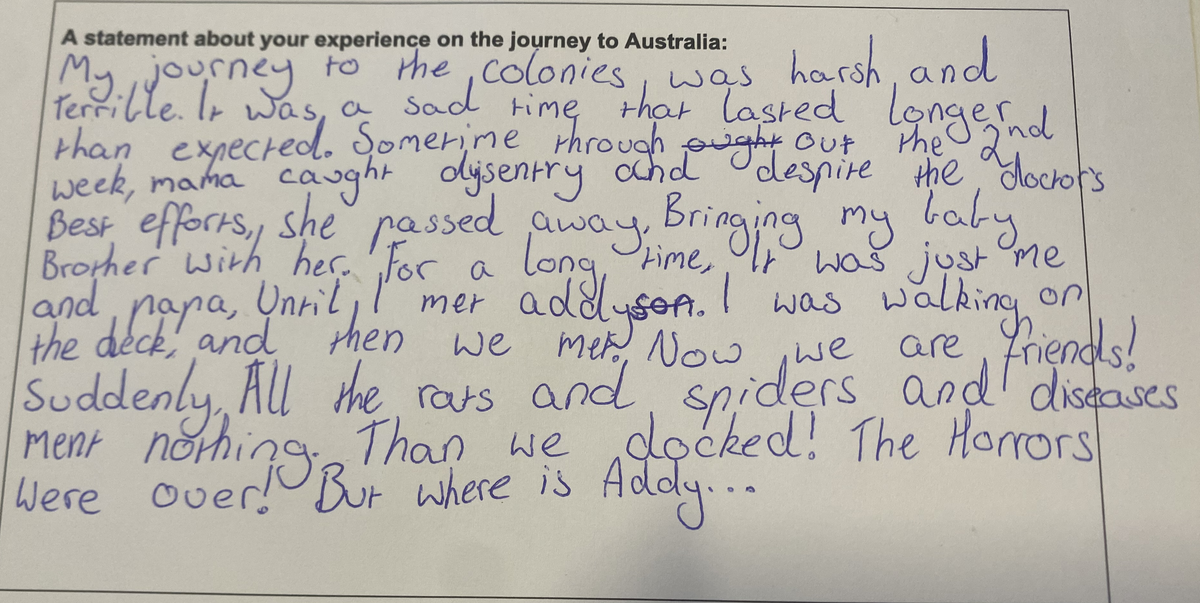 A statement about your experience on the journey to Australia:
My journey to the colonies, was harsh, and
terrible. It was, a sad time that lasted longer
than expected. Sometime through ought out the 2nd
week, mama caught dysentry and despite the doctor's
Best efforts, she passed away, Bringing my baby
Brother with her. For a long time, It was just me
and papa, Until, I met addyson. I was walking on
the deck, and then we met. Now we are friends!
Suddenly, All the rats and spiders and diseases
ment nothing. Than we docked! The Horrors
Were over! But where is Addy...